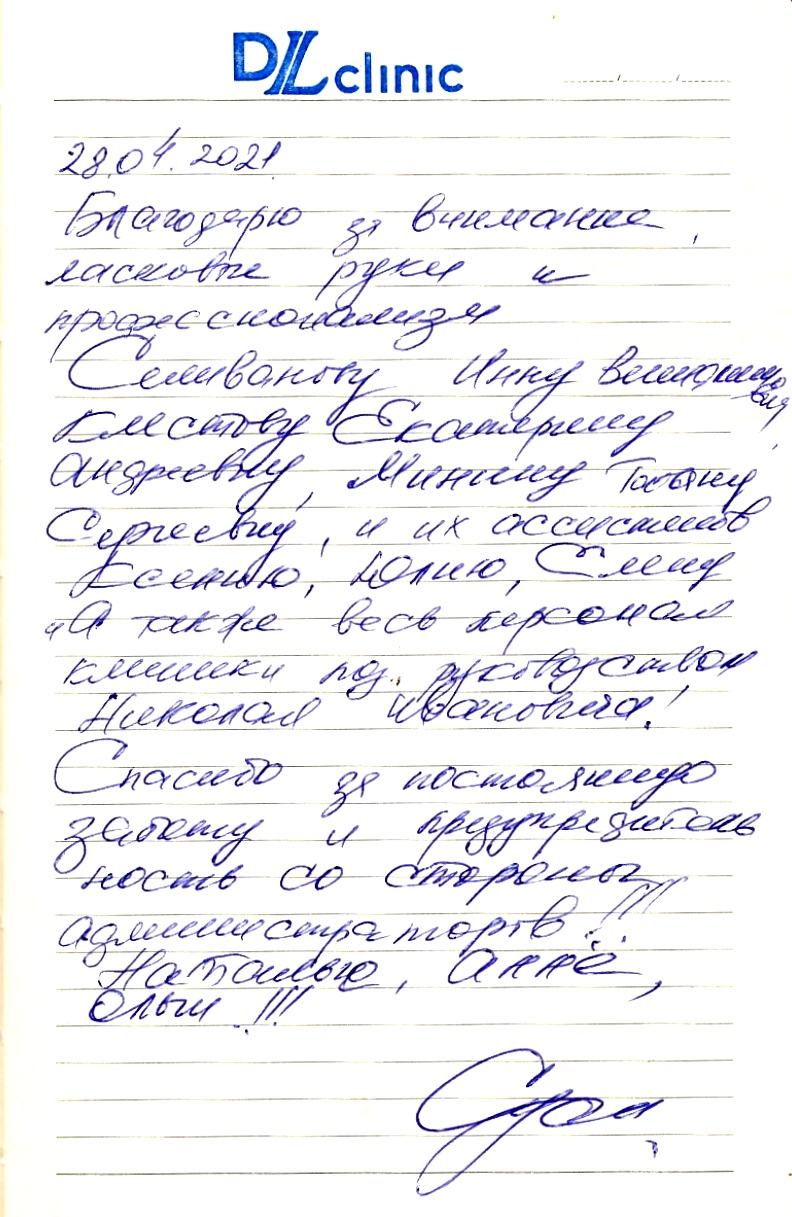 DL clinic
28.04.2021
Благодарю за внимание,
ласковые руки и
профессионализм
Селиванову Инну
Клестову Екатерину
Андреевну, Минину Татьяну
Сергеевну, и их ассистентов
Ксению, Юлию, Елену
А также весь персонал
клиники под руководством
Николая Ивановича!
Спасибо за постоянную
заботу и предупредитель
ность со стороны
администраторов!!!
Наталью, Анне,
Ольги!!!